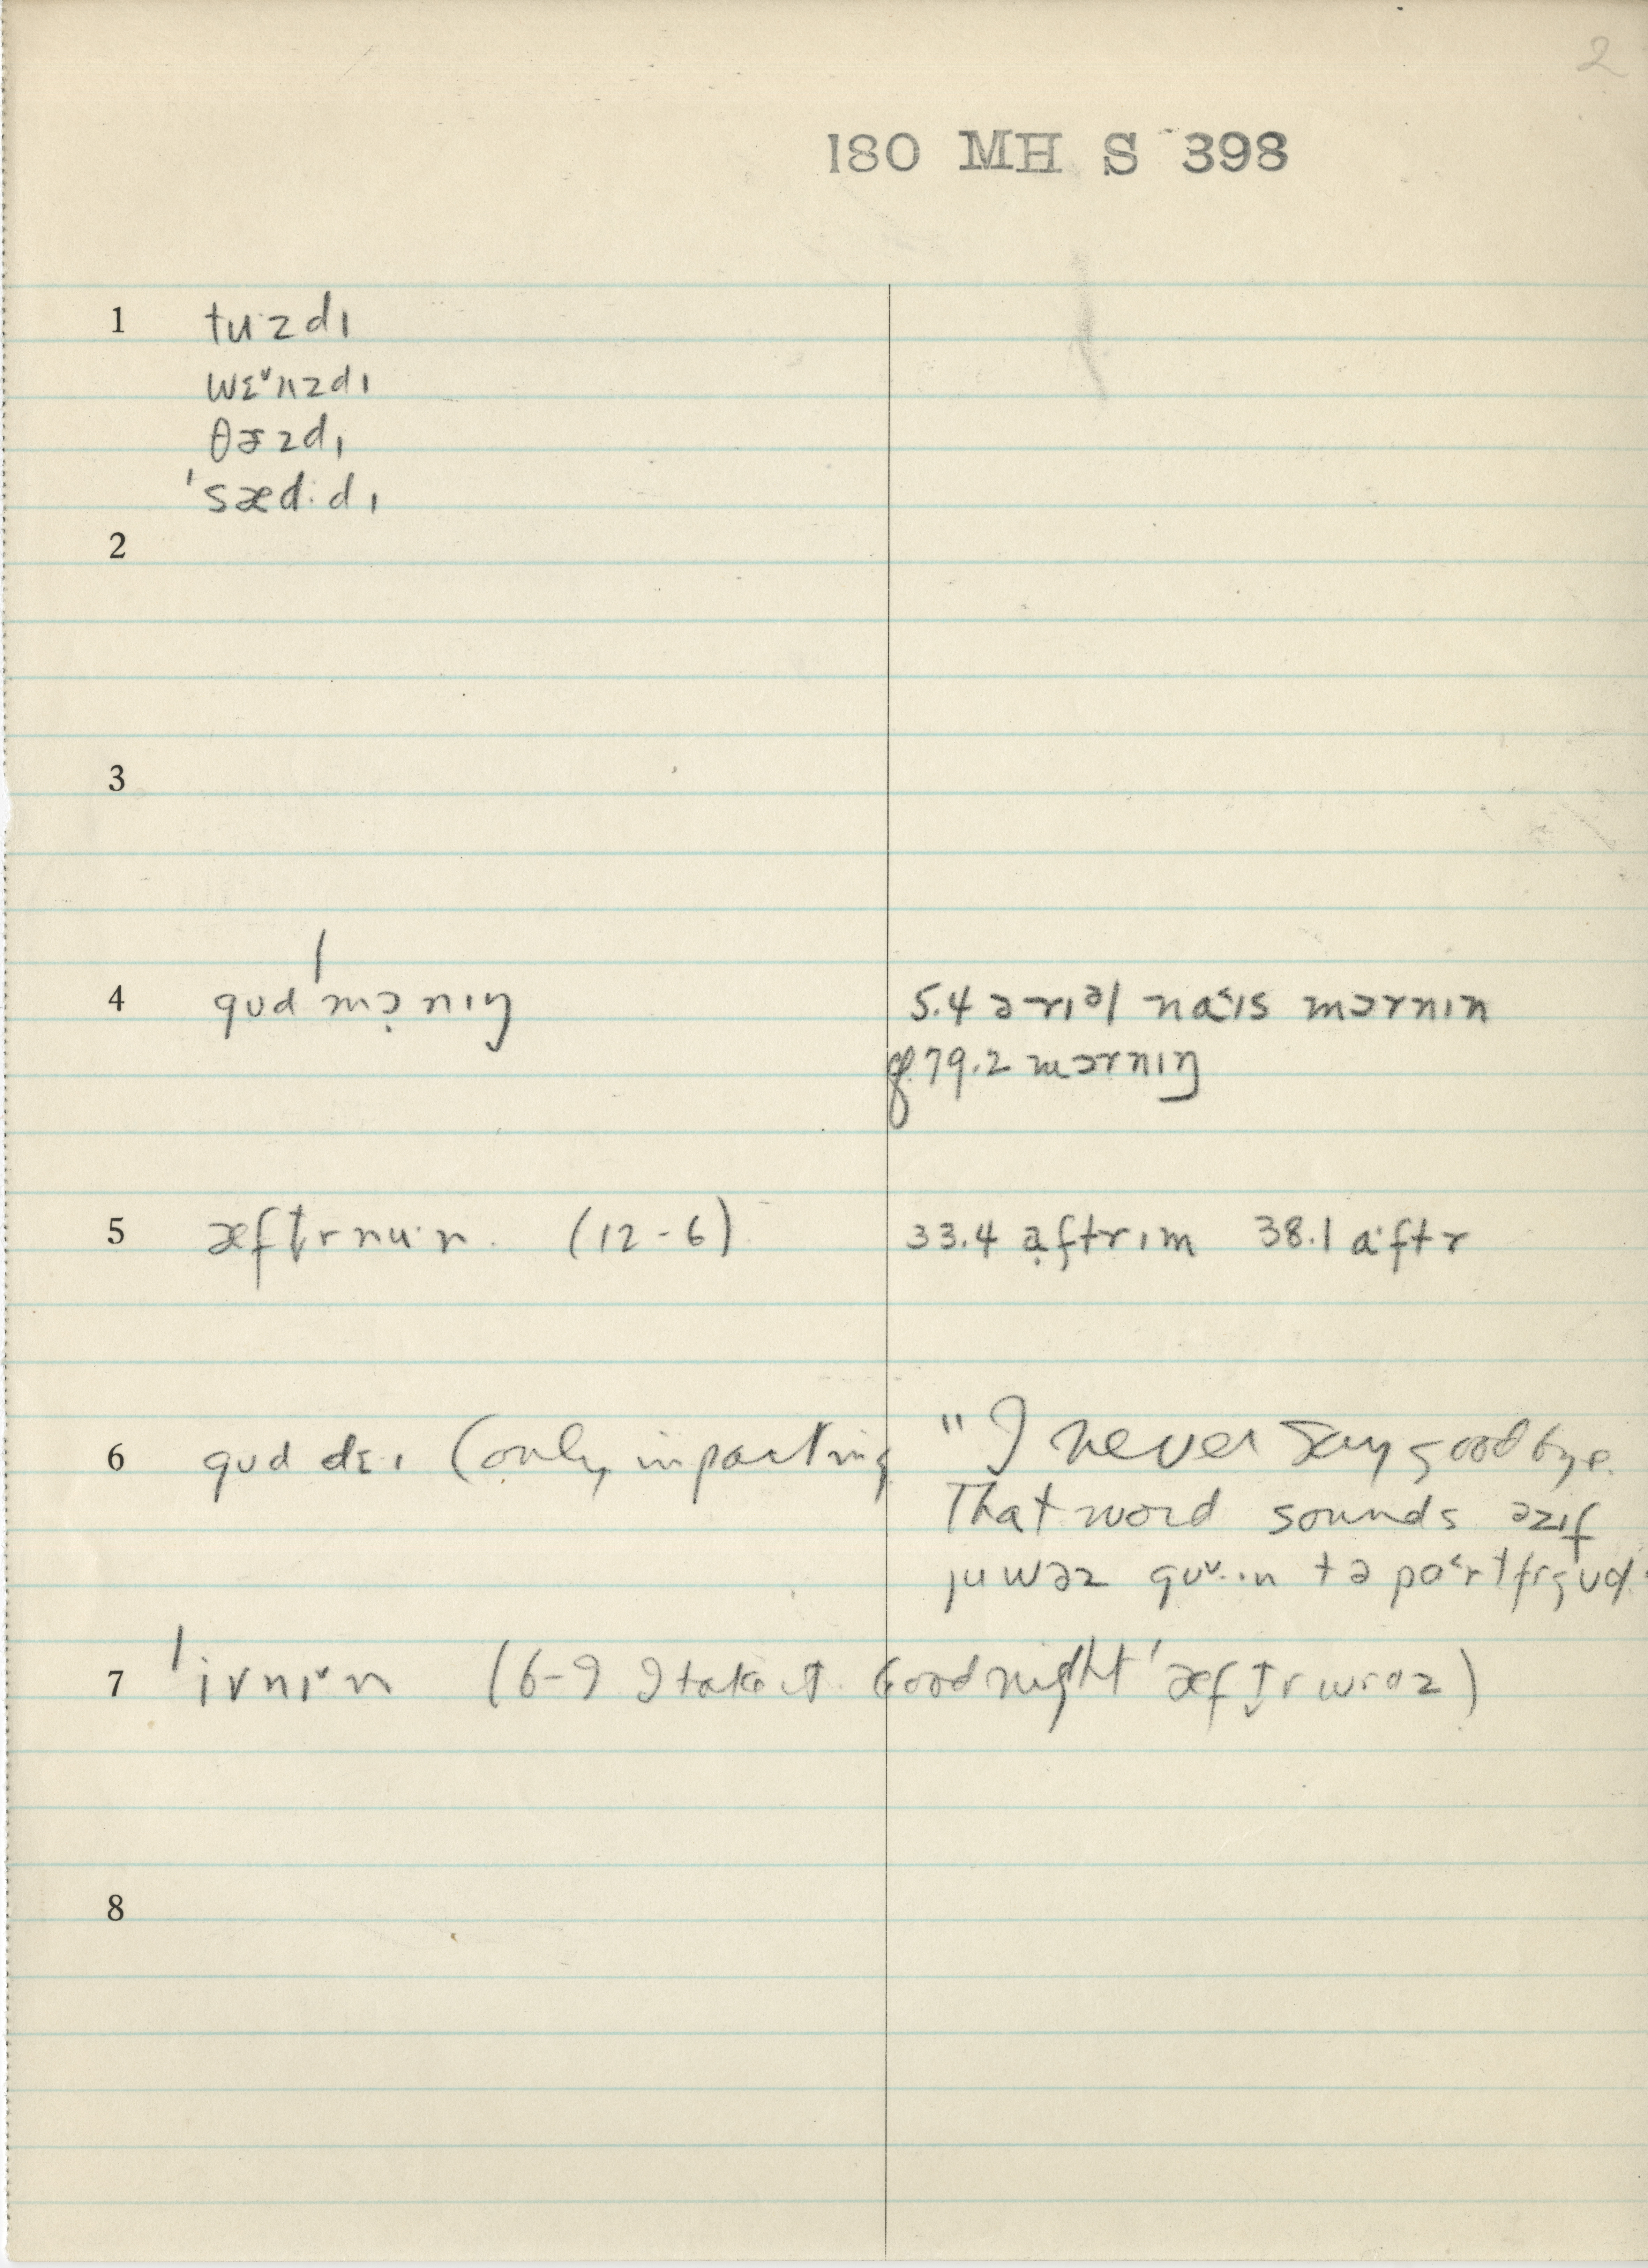 2
180 MH S 398
1 tuˑzdɪ
wɛᵛnzdɪ
θɚzdɪ
ˈsædˑdɪ
2
3
4 gʊdˈmɔ̣nɪŋ
5.4 ə rɪəl naˑ˂ɪs mɔrnɪn
cf. 79.2 mɔrnɪŋ
5 æftrnuˑn. (12-6)
33.4 ạftrɪm 38.1 aˑftr
6 gʊd dɛˑɪ (only in parting
"I never say goodbye.
That word sounds əzɪf
ju wəz gʊᵛˑɪn tə pɑ˂rt frgʊd.
7 ˈivnɪᵛn (6-9 I take it. Goodnight ˈæftrwrdz)
8